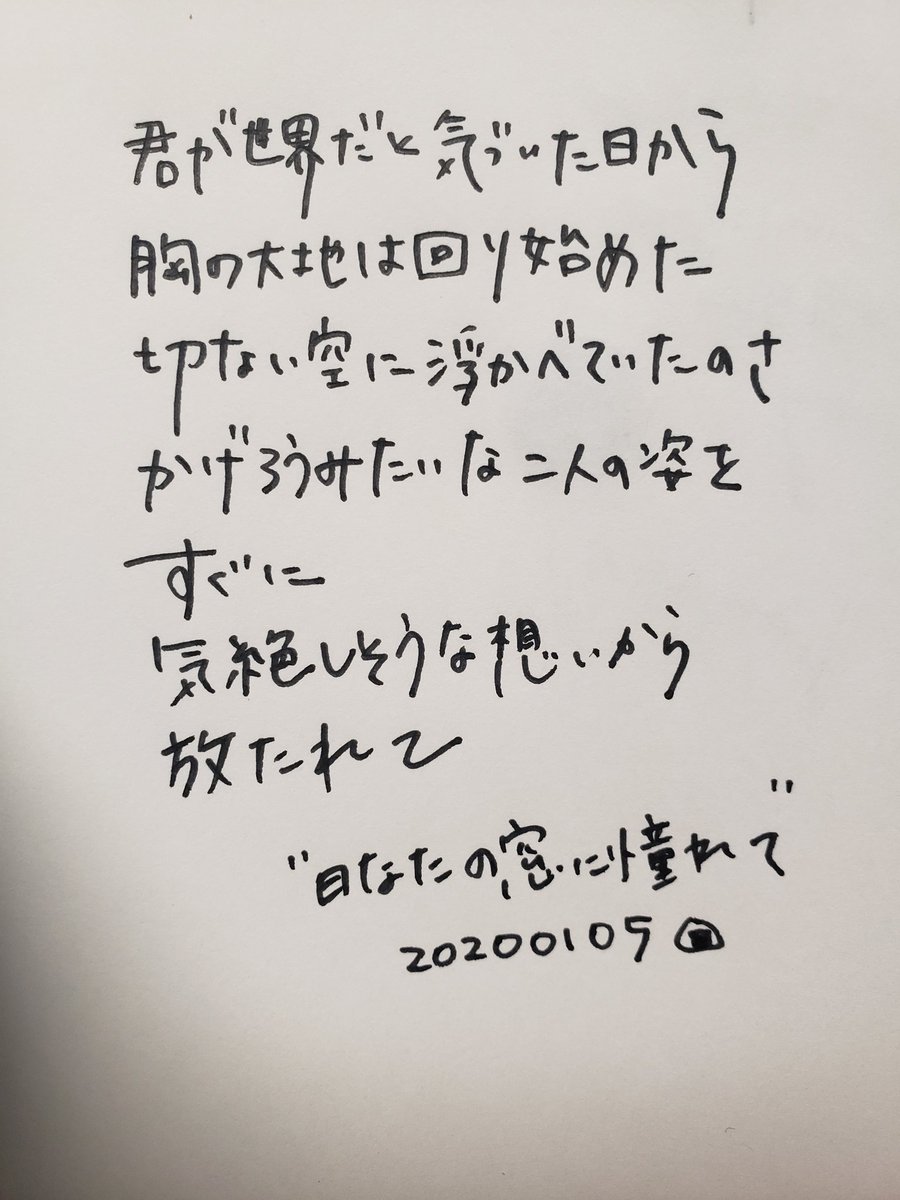 君が世界だと気づいた日から
胸の大地は回り始めた
切ない空に浮かべていたのさ
かげろうみたいな二人の姿を
すぐに
気絶しそうな想いから
放たれて
"日なたの窓に憧れて"
20200105